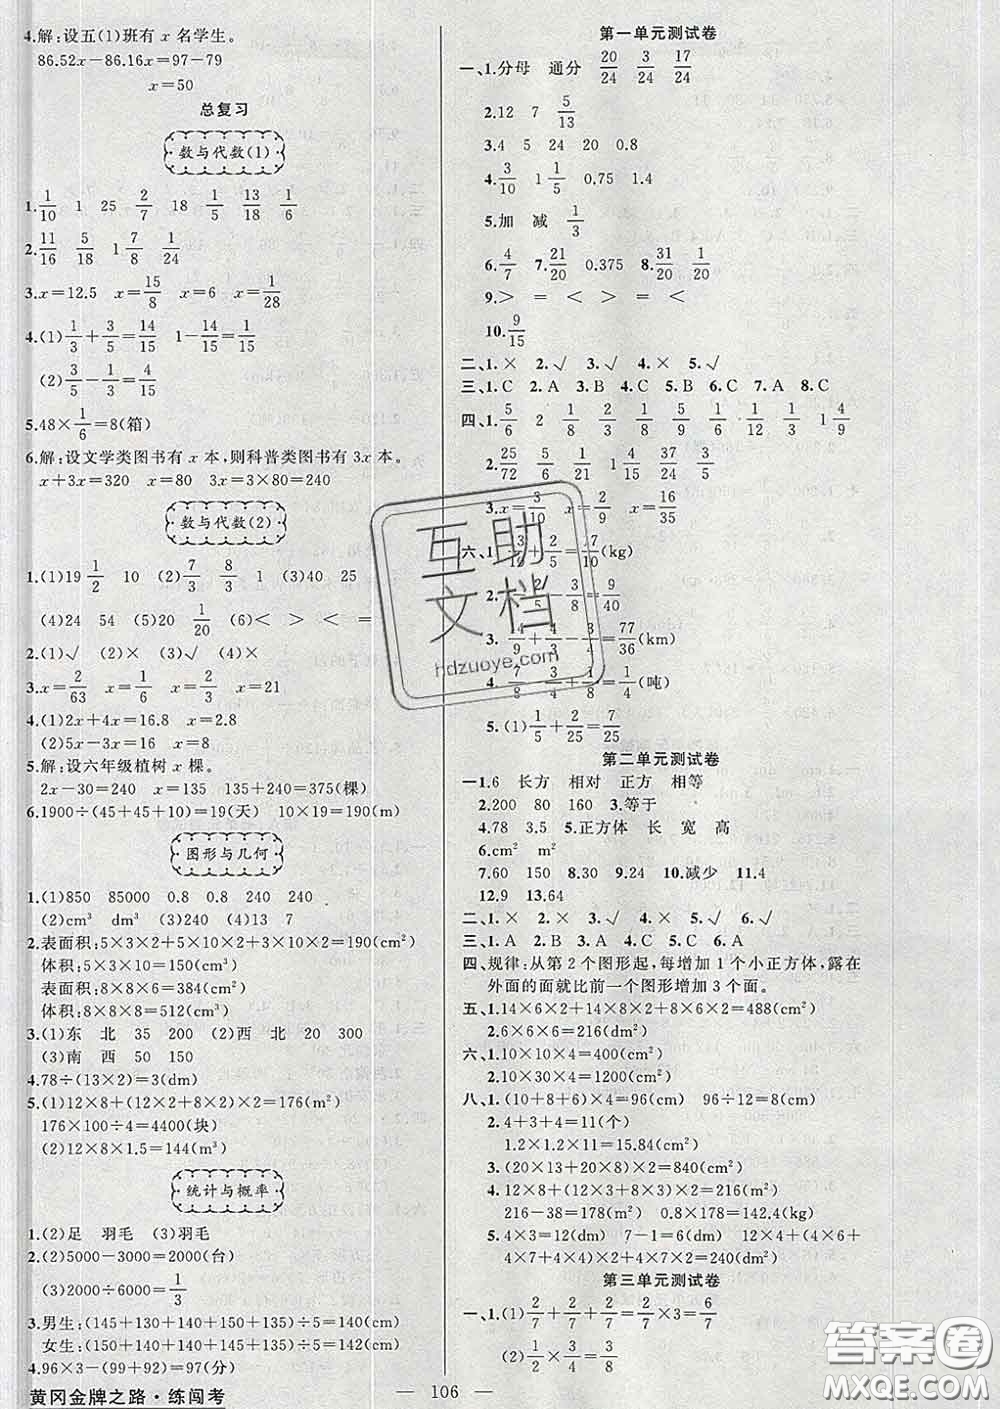 4.解:设五(1)班有 x 名学生。
86.52x−86.16x=97−79
x=50
总复习
数与代数(1)
1. 1/10 1 25 2/7 18 1/5 13/18 1/6
2. 11/16 5/18 1 7/8 1/24
3.x=12.5 x=15/8 x=6 x=1/28
4.(1)1/3+3/5=14/15 1−14/15=1/15
(2)3/5−1/3=4/15
5.48×1/6=8(箱)
6.解:设文学类图书有 x 本,则科普类图书有 3x 本。
x+3x=320 x=80 3x=3×80=240
数与代数(2)
1.(1)19 1/2 10 (2)7/3 8/3 1 (3)40 25 8
(4)24 54 (5)20 1/20 (6)< < > =
2.(1)√ (2)× (3)√ (4)×
3.x=2/63 x=4/15 x=9
4.(1)2x+4x=16.8 x=2.8
(2)5x−3x=16 x=8
5.解:设六年级植树 x 棵。
2x−30=240 x=135 135+240=375(棵)
6.1900÷(45+45+10)=19(天) 10×19=190(米)
图形与几何
1.(1)850 85000 0.8 0.8 240 240
(2)cm³ dm³ (3)240 (4)13 7
2.表面积:5×3×2+5×10×2+3×10×2=190(cm²)
体积:5×3×10=150(cm³)
表面积:8×8×6=384(cm²)
体积:8×8×8=512(cm³)
3.(1)东 北 35 200 (2)西 北 20 300
(3)南 西 50 150
4.78÷(13×2)=3(dm)
5.(1)12×8+(12×2+8×2)×2=176(m²)
176×100÷4=4400(块)
(2)12×8×1.5=144(m³)
统计与概率
1.(2)足 羽毛 (3)羽毛
2.(2)5000−3000=2000(台)
(3)2000÷6000=1/3
3.男生:(145+130+140+150+135)÷5=140(cm)
女生:(150+145+120+145+135)÷5=139(cm)
4.96×3−(99+92)=97(分)
黄冈金牌之路·练闯考
第一单元测试卷
一、1.分母 通分 20/24 3/24 17/24
2.12 7 5/13
3.4 5 24 20 0.8
4. 3/10 1 1/5 0.75 1.4
5.加 减 1/3
6. 4/7 7. 21/20 0.375 8. 31/20 1/20
9.> = < < > =
10. 9/15
二、1.× 2.√ 3.√ 4.× 5.√
三、1.C 2.A 3.B 4.C 5.C 6.C 7.A 8.C
四、1. 5/6 2 1/8 2/3 1/8 1/12 1/8 1 4/9
2. 25/72 5/8 1/21 4/15 37/24 3/5
3.x=3/10 x=2/9 x=16/35
六、1. 3/10+2/5=7/10(kg)
2. 2/5 3/8=9/40
3. + − =77/36(km)
4. 7/8 =1/4(吨)
5.(1)1/5+2/25=7/25
第二单元测试卷
一1.6 长方 相对 正方 相等
2.200 80 160 3.等于
4.78 3.5 5.正方体 长 宽 高
6.cm² m²
7.60 150 8.30 9.24 10.减少 11.4
12.9 13.64
二、1.× 2.× 3.√ 4.√ 5.× 6.√
三、1.A 2.B 3.B 4.C 5.B 6.A
四、规律:从第 2 个图形起,每增加 1 个小正方体,露在
外面的面就比前一个图形增加 3 个面。
五、1.14×6×2+14×8×2+8×6×2=488(cm²)
2.6×6×6=216(dm²)
六、1.10×10×4=400(cm²)
2.10×30×4=1200(cm²)
八、1.(10+8+6)×4=96(cm) 96÷12=8(cm)
2.4+3+4=11(个)
1.2×1.2×11=15.84(cm²)
3.(20×13+20×8)×2=840(cm²)
4.12×8+(12×3+8×3)×2=216(m²)
216−38=178(m²) 0.8×178=142.4(kg)
5.4×3=12(dm) 7−1=6(dm) 12×4+(4×6+
4×7+6×4)×2+(7×4+4×4)×2=240(dm²)
第三单元测试卷
一、1.(1)2/7+2/7+2/7=2/7×3=6/7
(2)1/2×3/4=3/8
— 106 —
互助
文档
hdzuoye.com
答案圈